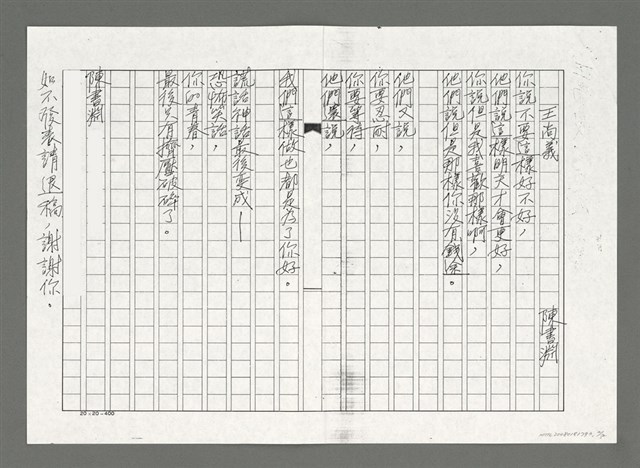 王尚義
陳書淵
你說不要這樣好不好,
他們說這樣明天才會更好,
你說但是我喜歡那樣啊,
他們說但是那樣你沒有錢途。
他們又說,
你要忍耐,
你要等待,
他們還說,
我們這樣做也都是為了你好。
謊話神話最後變成—
恐怖笑話,
你的青春,
最後只有擠壓破碎了。
陳書淵
如不發表請退稿,謝謝你。
20×20=400